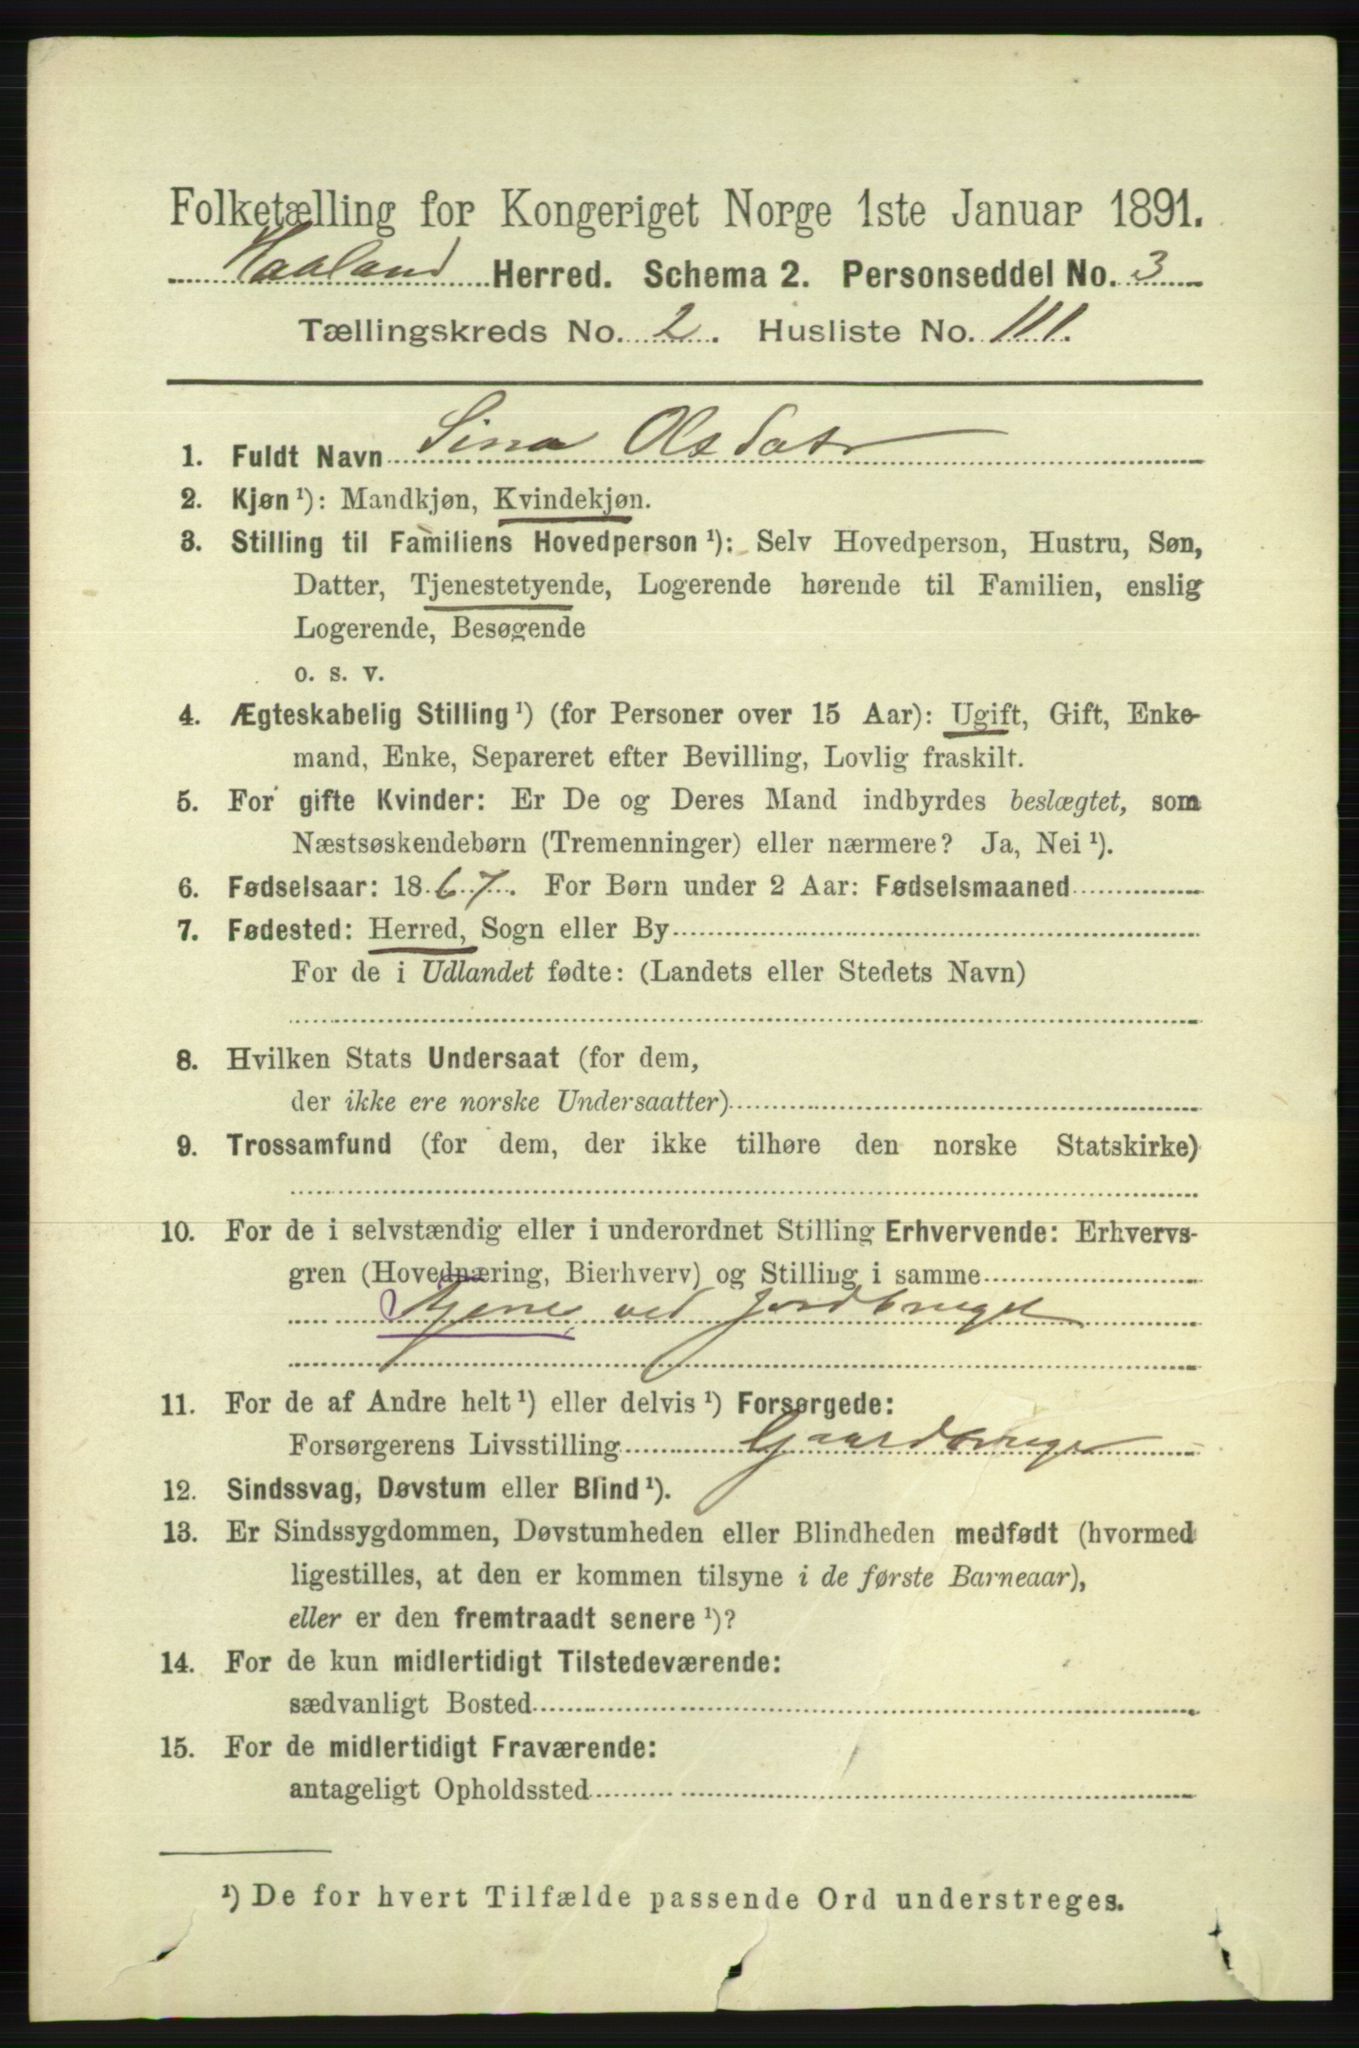 Folketælling for Kongeriget Norge 1ste Januar 1891.
Haaland Herred. Schema 2. Personseddel No. 3
Tællingskreds No. 2. Husliste No. 111.
1. Fuldt Navn Sina Olsdatr
2. Kjøn¹): Mandkjøn, Kvindekjøn.
3. Stilling til Familiens Hovedperson¹): Selv Hovedperson, Hustru, Søn,
Datter, Tjenestetyende, Logerende hørende til Familien, enslig
Logerende, Besøgende
o. s. v.
4. Ægteskabelig Stilling¹) (for Personer over 15 Aar): Ugift, Gift, Enke-
mand, Enke, Separeret efter Bevilling, Lovlig fraskilt.
5. For gifte Kvinder: Er De og Deres Mand indbyrdes beslægtet, som
Næstsøskendebørn (Tremenninger) eller nærmere? Ja, Nei¹).
6. Fødselsaar: 1867. For Børn under 2 Aar: Fødselsmaaned
7. Fødested: Herred, Sogn eller By
For de i Udlandet fødte: (Landets eller Stedets Navn)
8. Hvilken Stats Undersaat (for dem,
der ikke ere norske Undersaatter)
9. Trossamfund (for dem, der ikke tilhøre den norske Statskirke)
10. For de i selvstændig eller i underordnet Stilling Erhvervende: Erhvervs-
gren (Hovednæring, Bierhverv) og Stilling i samme
ved Jordbruget
11. For de af Andre helt¹) eller delvis¹) Forsørgede:
Forsørgerens Livsstilling Gaardbruger
12. Sindssvag, Døvstum eller Blind¹).
13. Er Sindssygdommen, Døvstumheden eller Blindheden medfødt (hvormed
ligestilles, at den er kommen tilsyne i de første Barneaar),
eller er den fremtraadt senere¹)?
14. For de kun midlertidigt Tilstedeværende:
sædvanligt Bosted
15. For de midlertidigt Fraværende:
antageligt Opholdssted
¹) De for hvert Tilfælde passende Ord understreges.